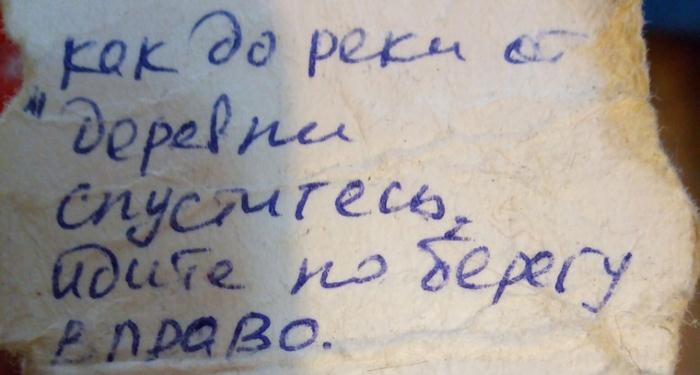 как до реки от
деревни
спуститесь,
идите по берегу
вправо.